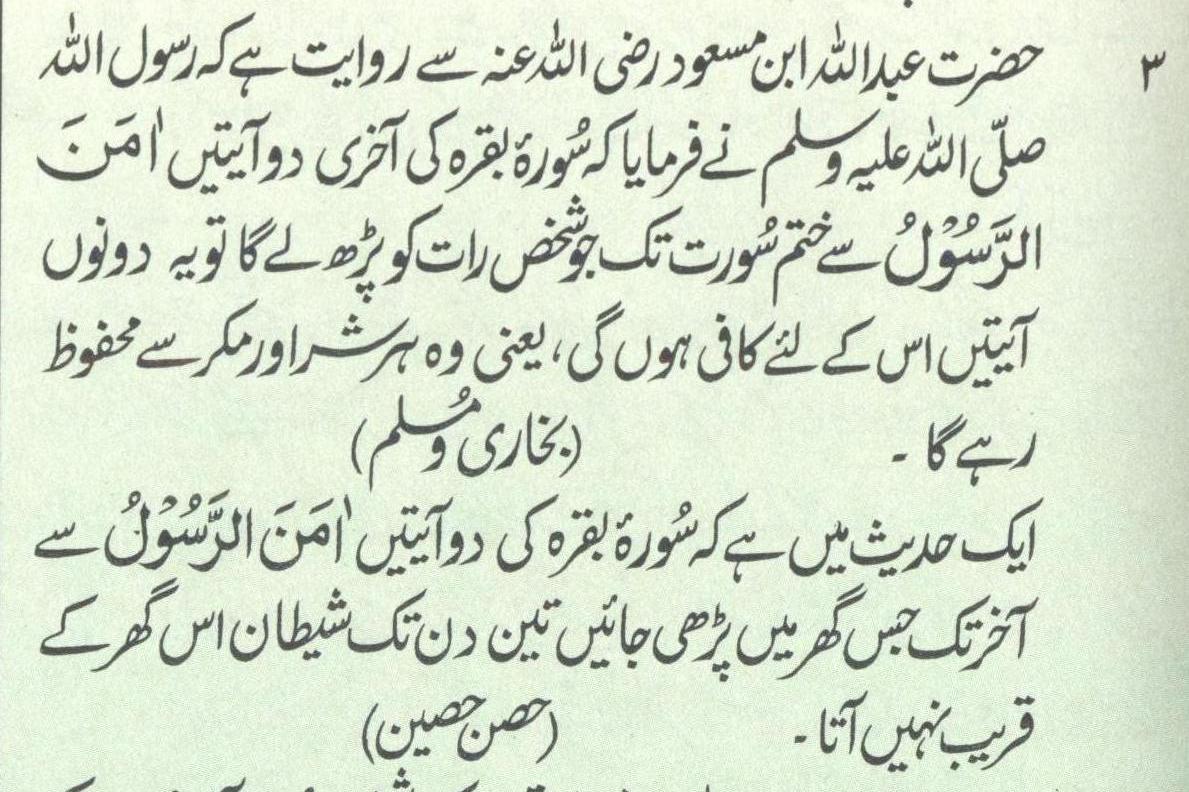 ۳ حضرت عبداللہ ابن مسعود رضی اللہ عنہ سے روایت ہے کہ رسول اللہ
صلّی اللہ علیہ وسلم نے فرمایا کہ سُورۂ بقرہ کی آخری دو آیتیں اٰمَنَ
الرَّسُوْلُ سے ختم سُورت تک جو شخص رات کو پڑھ لے گا تو یہ دونوں
آیتیں اس کے لئے کافی ہوں گی، یعنی وہ ہر شر اور مکر سے محفوظ
رہے گا ۔ (بخاری و مُسلم)
ایک حدیث میں ہے کہ سُورۂ بقرہ کی دو آیتیں اٰمَنَ الرَّسُوْلُ سے
آخر تک جس گھر میں پڑھی جائیں تین دن تک شیطان اس گھر کے
قریب نہیں آتا ۔ (حصن حصین)